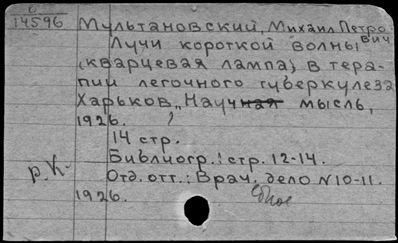 0
14596 Мультановский, Михаил Петро-
вич
Лучи короткой волны
(кварцевая лампа) в тера-
пии легочного туберкулеза
Харьков, "Научная мысль,
1926.
14 стр.
Библиогр.: стр. 12-14.
р.К. Отд. отт.: Врач. дело N 10-11.
1926.